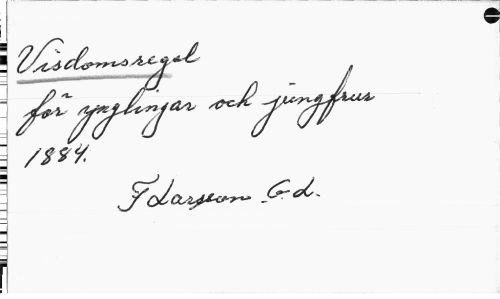 Visdomsregel
för ynglingar och jungfrur
1884.
F Larsson G.d.